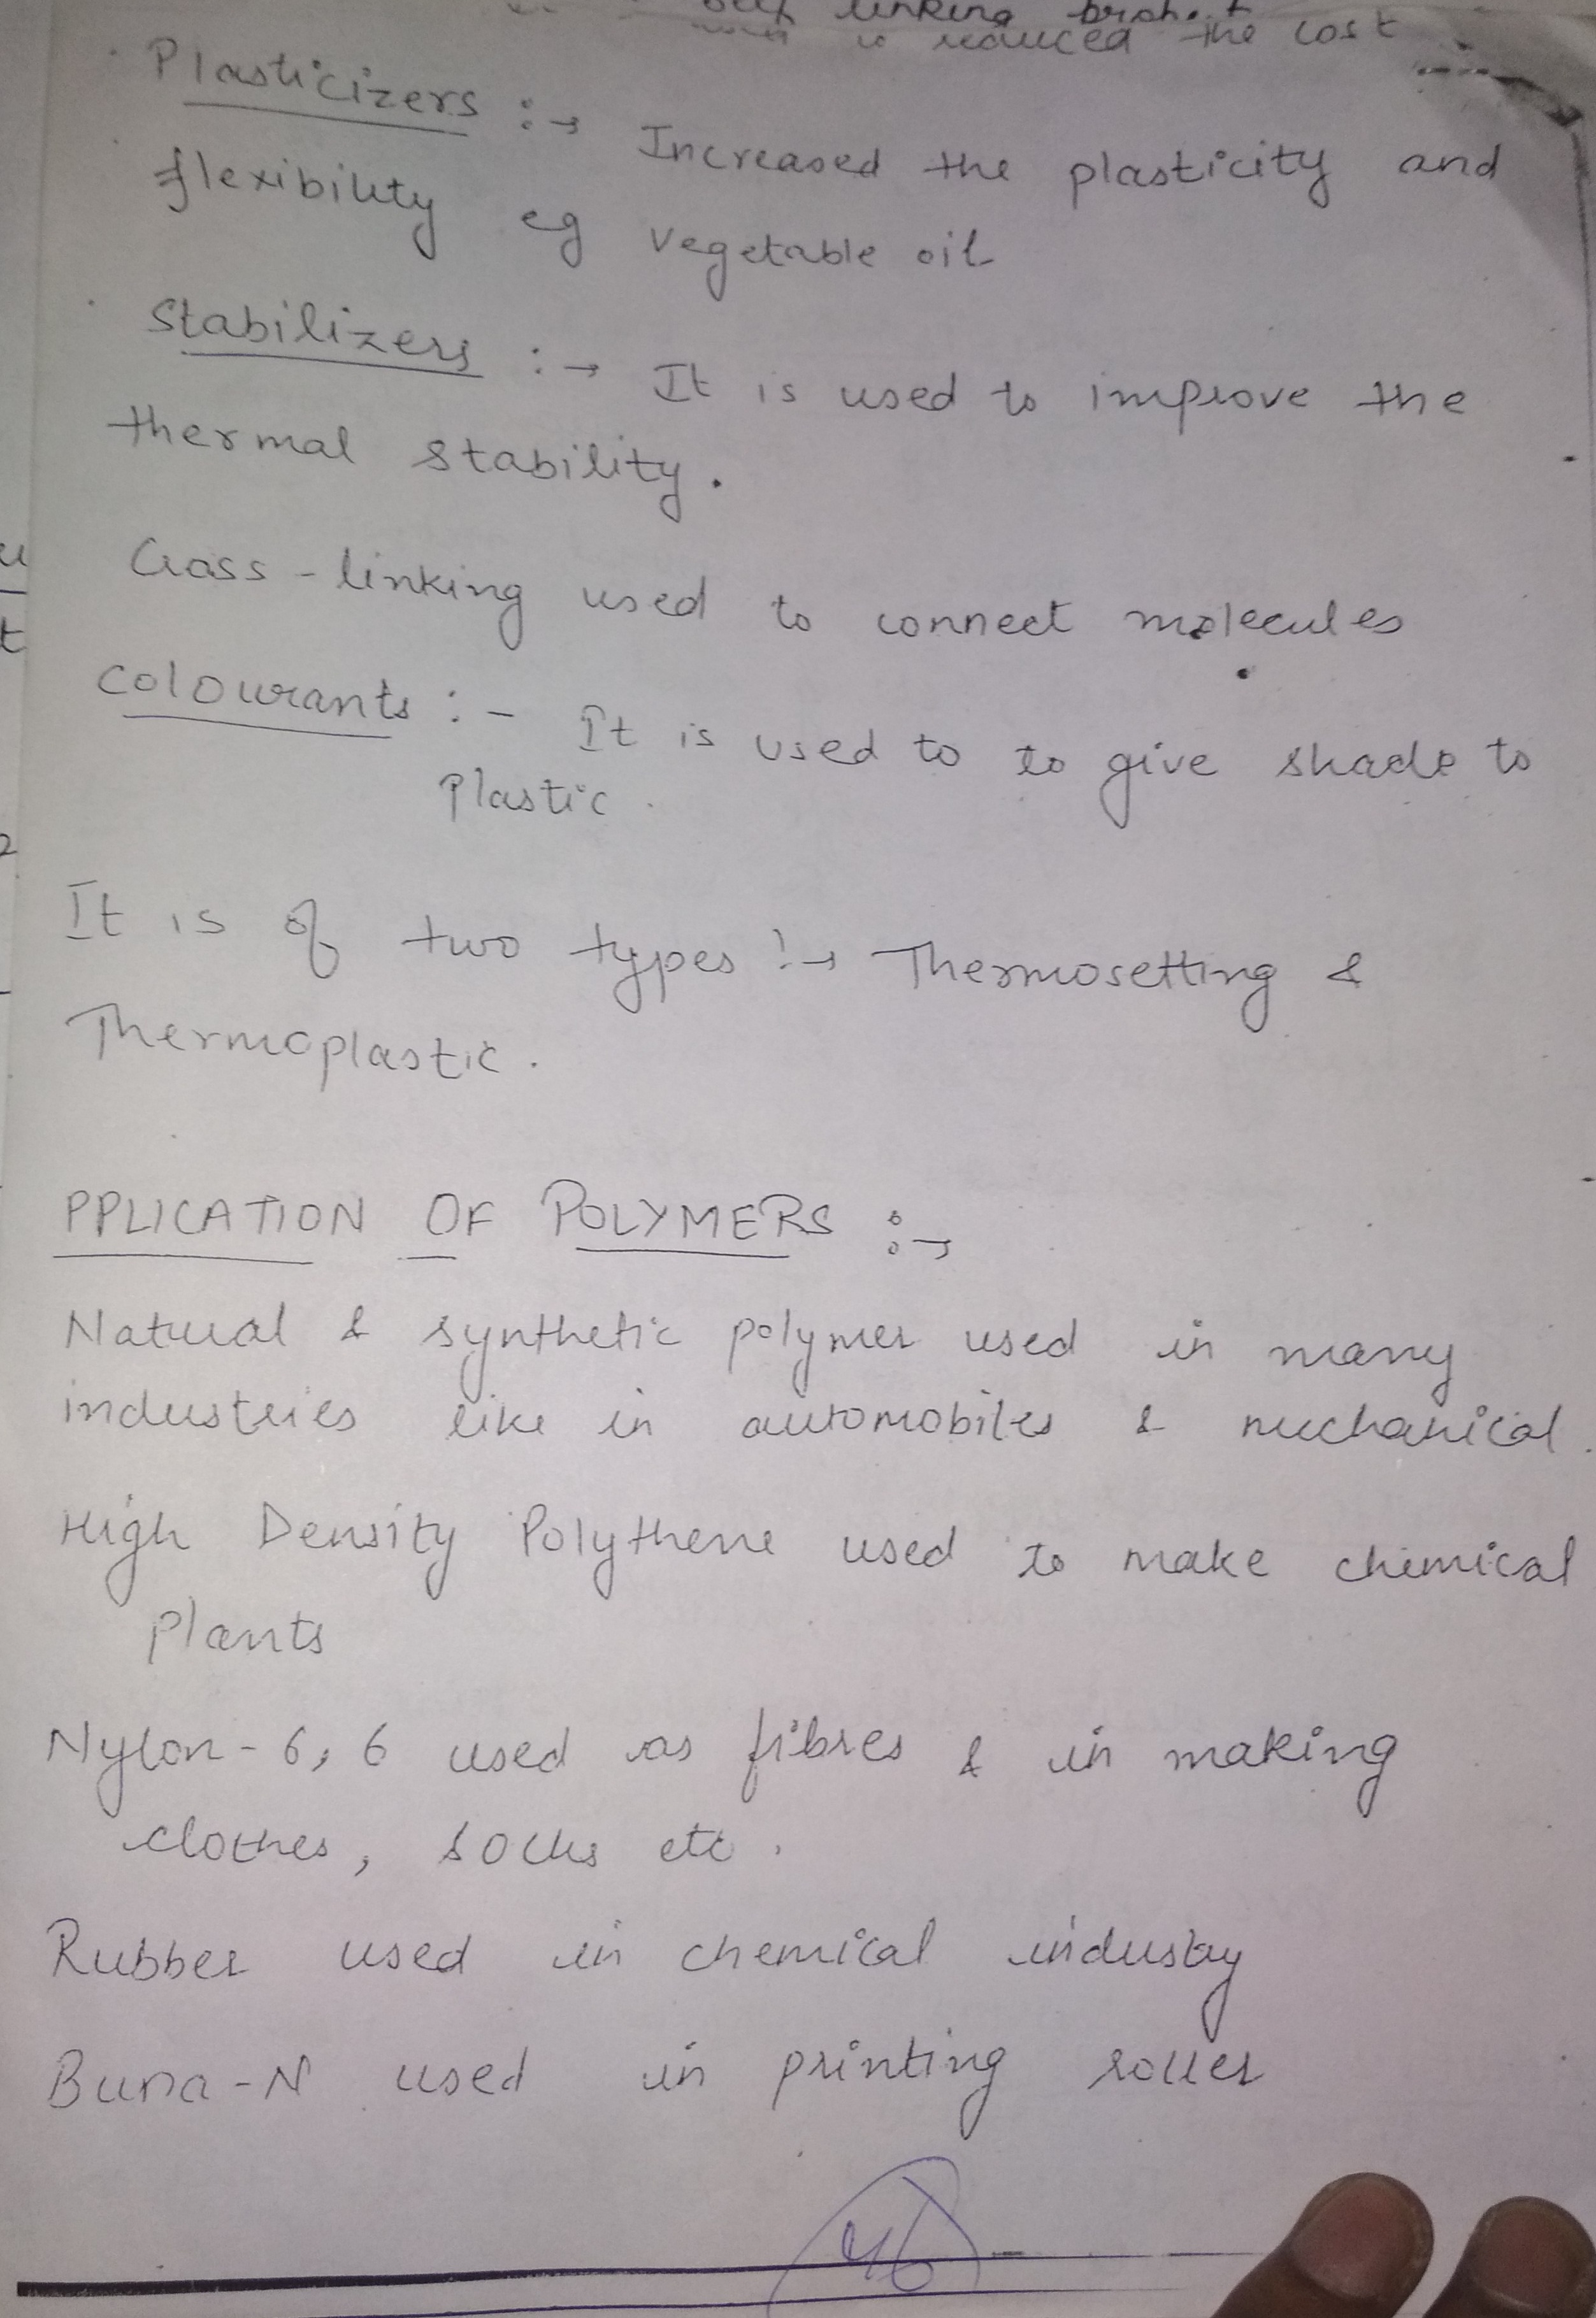 linking
is reduced the cost
Plasticizers :→ Increased the plasticity and
flexibility eg vegetable oil
Stabilizers :→ It is used to improve the
thermal stability.
Cross-linking used to connect molecules
Colourants :- It is used to to give shade to
plastic.
It is of two types :→ Thermosetting &
Thermoplastic.
PPLICATION OF POLYMERS :→
Natural & synthetic polymer used in many
industries like in automobiles & mechanical.
High Density Polythene used to make chemical
plants
Nylon-6,6 used as fibres & in making
clothes, socks etc.
Rubber used in chemical industry
Buna-N used in printing roller
46